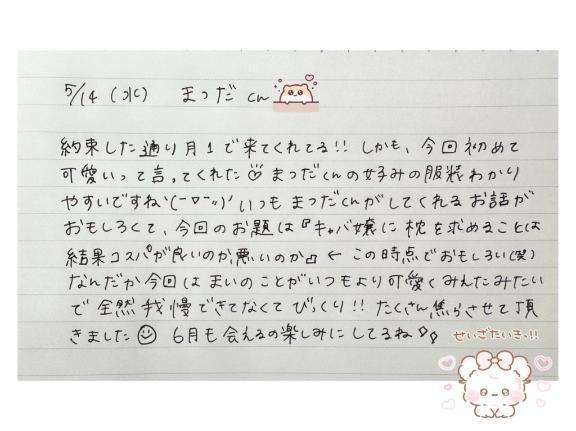 5/14 (水) まつだくん
約束した通り月1で来てくれてる!! しかも、今回初めて
可愛いって言ってくれた♡ まつだくんの好みの服装わかり
やすいですね(ーーーツ)ノ いつもまつだくんがしてくれるお話が
おもしろくて、今回のお題は『キャバ嬢に枕を求めることは
結果コスパが良いのか、悪いのか』← この時点でおもしろい(笑)
なんだか今回はまいのことがいつもより可愛くみえたみたい
で全然我慢できてなくてびっくり!! たくさん焦らさせて頂
きました☺ 6月も会えるの楽しみにしてるね
せいざたいき・!!